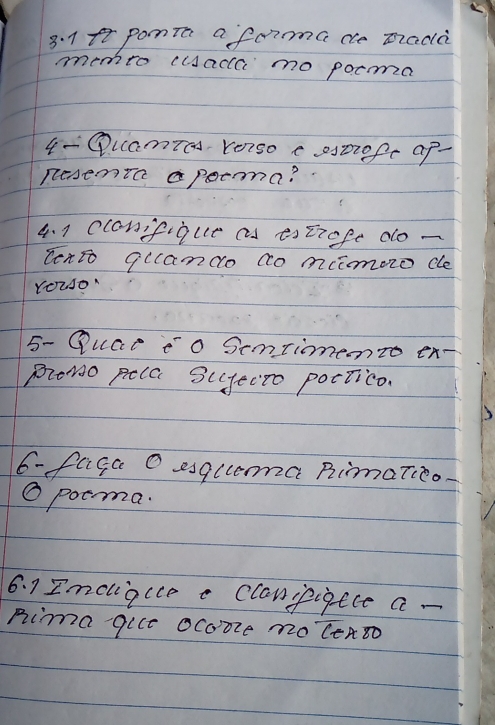 3.1 A ponta a forma de tradà
mento usada no poema
4- Quantos verso e estrofe ap-
resenta o poema?
4.1 classifique as estrofe do -
texto quando ao número de
verso.
5- Qual é o Sentimento ex-
presso pela Sujeito poetico.
6- faça o esquema Rimatico-
O poema.
6.1 Indique e classifique a -
Rima que ocorre no texto